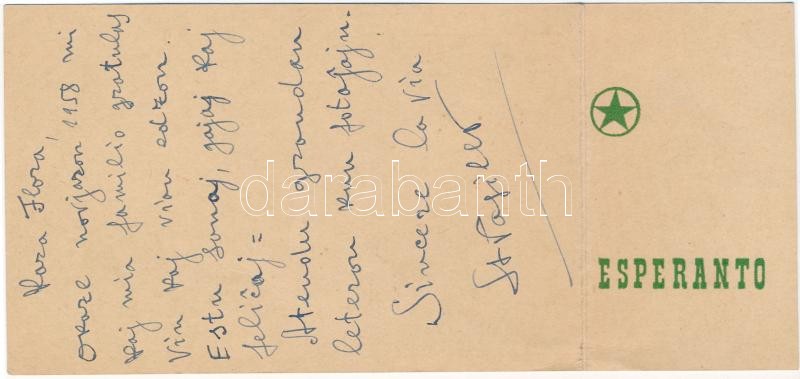 Kara Flora,
okaze novjaron, 1958 mi
kaj mia familio gratulas
Vin kaj vian edzon.
Estu sanaj, gajaj kaj
feliĉaj =
Atendu grandan
leteron kun fotoĵoju.
Sincere la via
ESPERANTO
darabanth